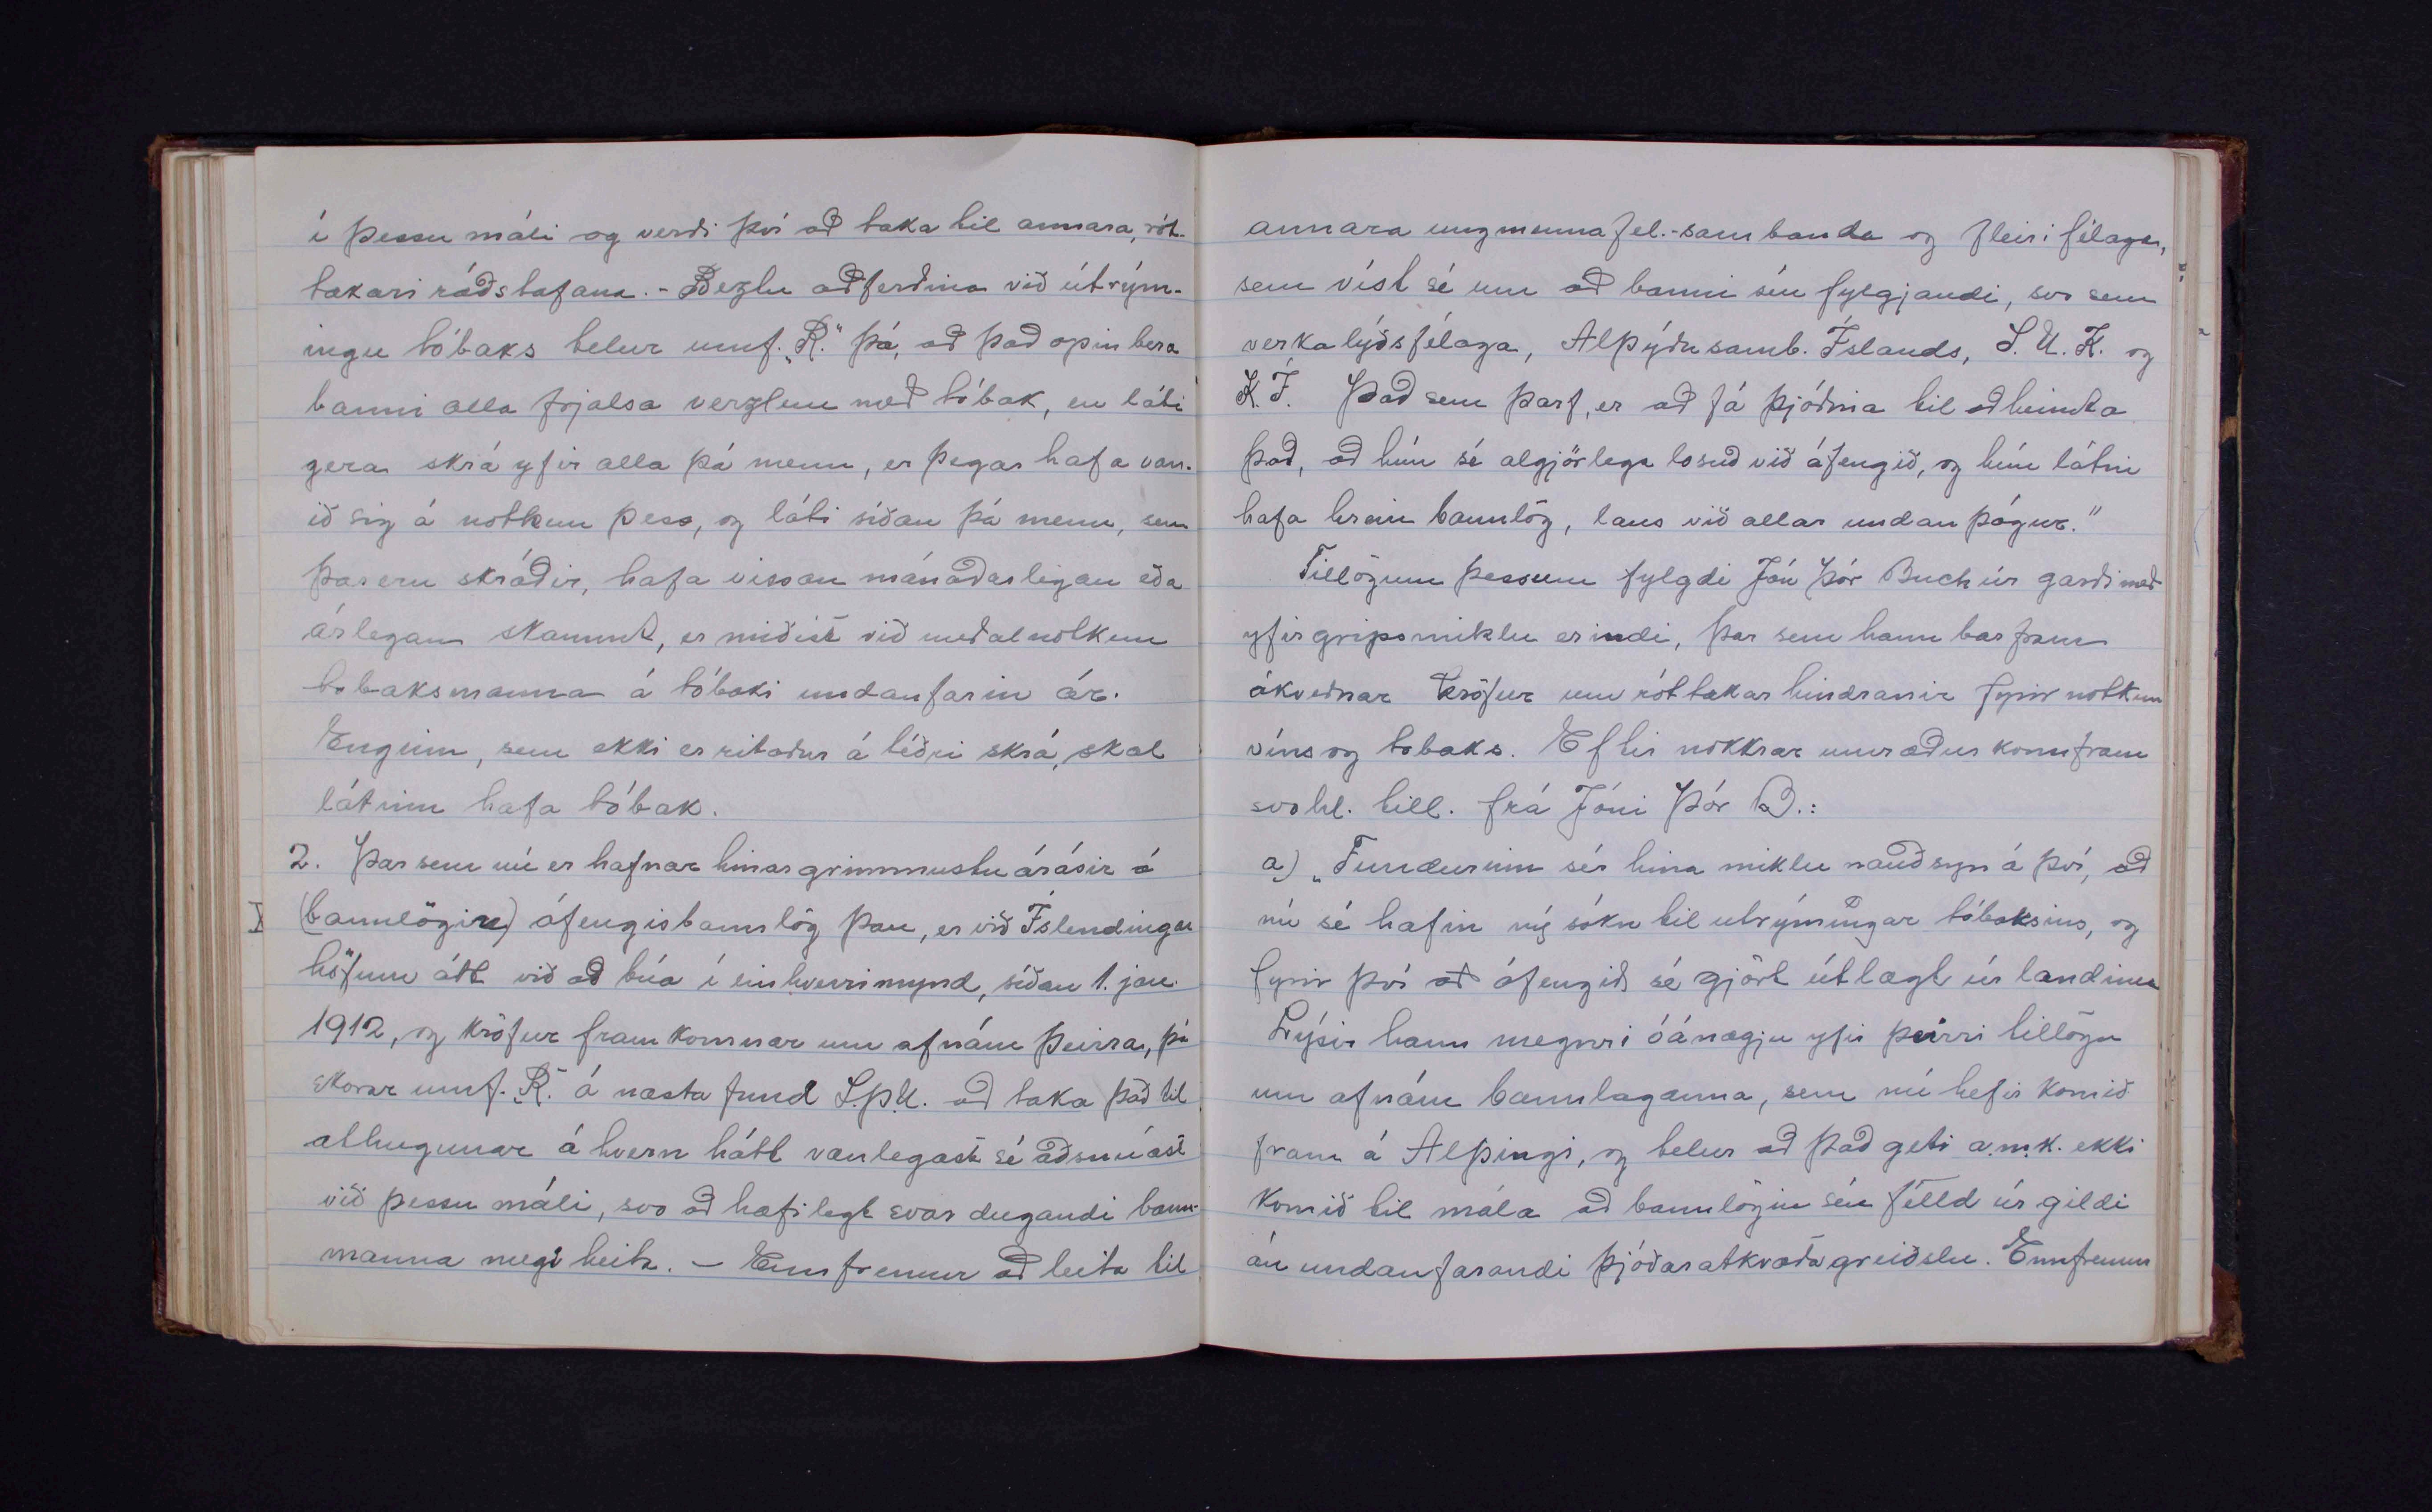 í þessu máli og verði því að taka til annara, rót-
tækari ráðstafana. - Beztu aðferðina við útrým-
ingu tóbaks telur umf. „R." þá, að það opinbera
banni alla frjálsa verzlun með tóbak, en láti
gera skrá yfir alla þá menn, er þegar hafa van-
ið sig á notkun þess, og láti síðan þá menn, sem
þar eru skráðir, hafa vissan mánaðarlegan eða
árlegan skammt, er miðist við meðalnotkun
tobaksmanna á tóbaki undanfarin ár.
Enginn, sem ekki er ritaður á téðri skrá, skal
látinn hafa tóbak.
2. Þar sem nú er hafnar hinar grimmustu árásir á
(bannlögin) áfengisbannlög þau, er við Íslendingar
höfum átt við að búa í einhverri mynd, síðan 1. jan.
1912, og kröfur fram komnar um afnám þeirra, þá
skorar umf. „R." á næsta fund S.þ.U. að taka það til
athugunar á hvern hátt vænlegast sé að snúast
við þessu máli, svo að hæfilegt svar dugandi bann-
manna megi heita. - Ennfremur að leita til
annara ungmennafél.-sambanda og fleiri félaga,
sem víst sé um að banni séu fylgjandi, svo sem
verkalýðsfélaga, Alþýðusamb. Íslands, S.U.K. og
K.Í. Það sem þarf, er að fá þjóðina til að heimta
það, að hún sé algjörlega losuð við áfengið, og hún látin
hafa hrein bannlög, laus við allar undanþágur."
Tillögum þessum fylgdi Jón Þór Buch úr garði með
yfirgripsmiklu erindi, þar sem hann bar fram
ákveðnar kröfur um róttækar hindranir fyrir notkun
víns og tobaks. Eftir nokkrar umræður kom fram
svohl. till. frá Jóni Þór B.:
a) „Fundurinn sér hina miklu nauðsyn á því, að
nú sé hafin ný sókn til utrýmingar tóbaksins, og
fyrir því að áfengið sé gjört útlægt úr landinu
Lýsir hann megnri óánægju yfir þeirri tillögu
um afnám bannlaganna, sem nú hefir komið
fram á Alþingi, og telur að það geti a.m.k. ekki
komið til mála að bannlögin séu felld úr gildi
án undanfarandi þjóðaratkvæðagreiðslu. Ennfremur